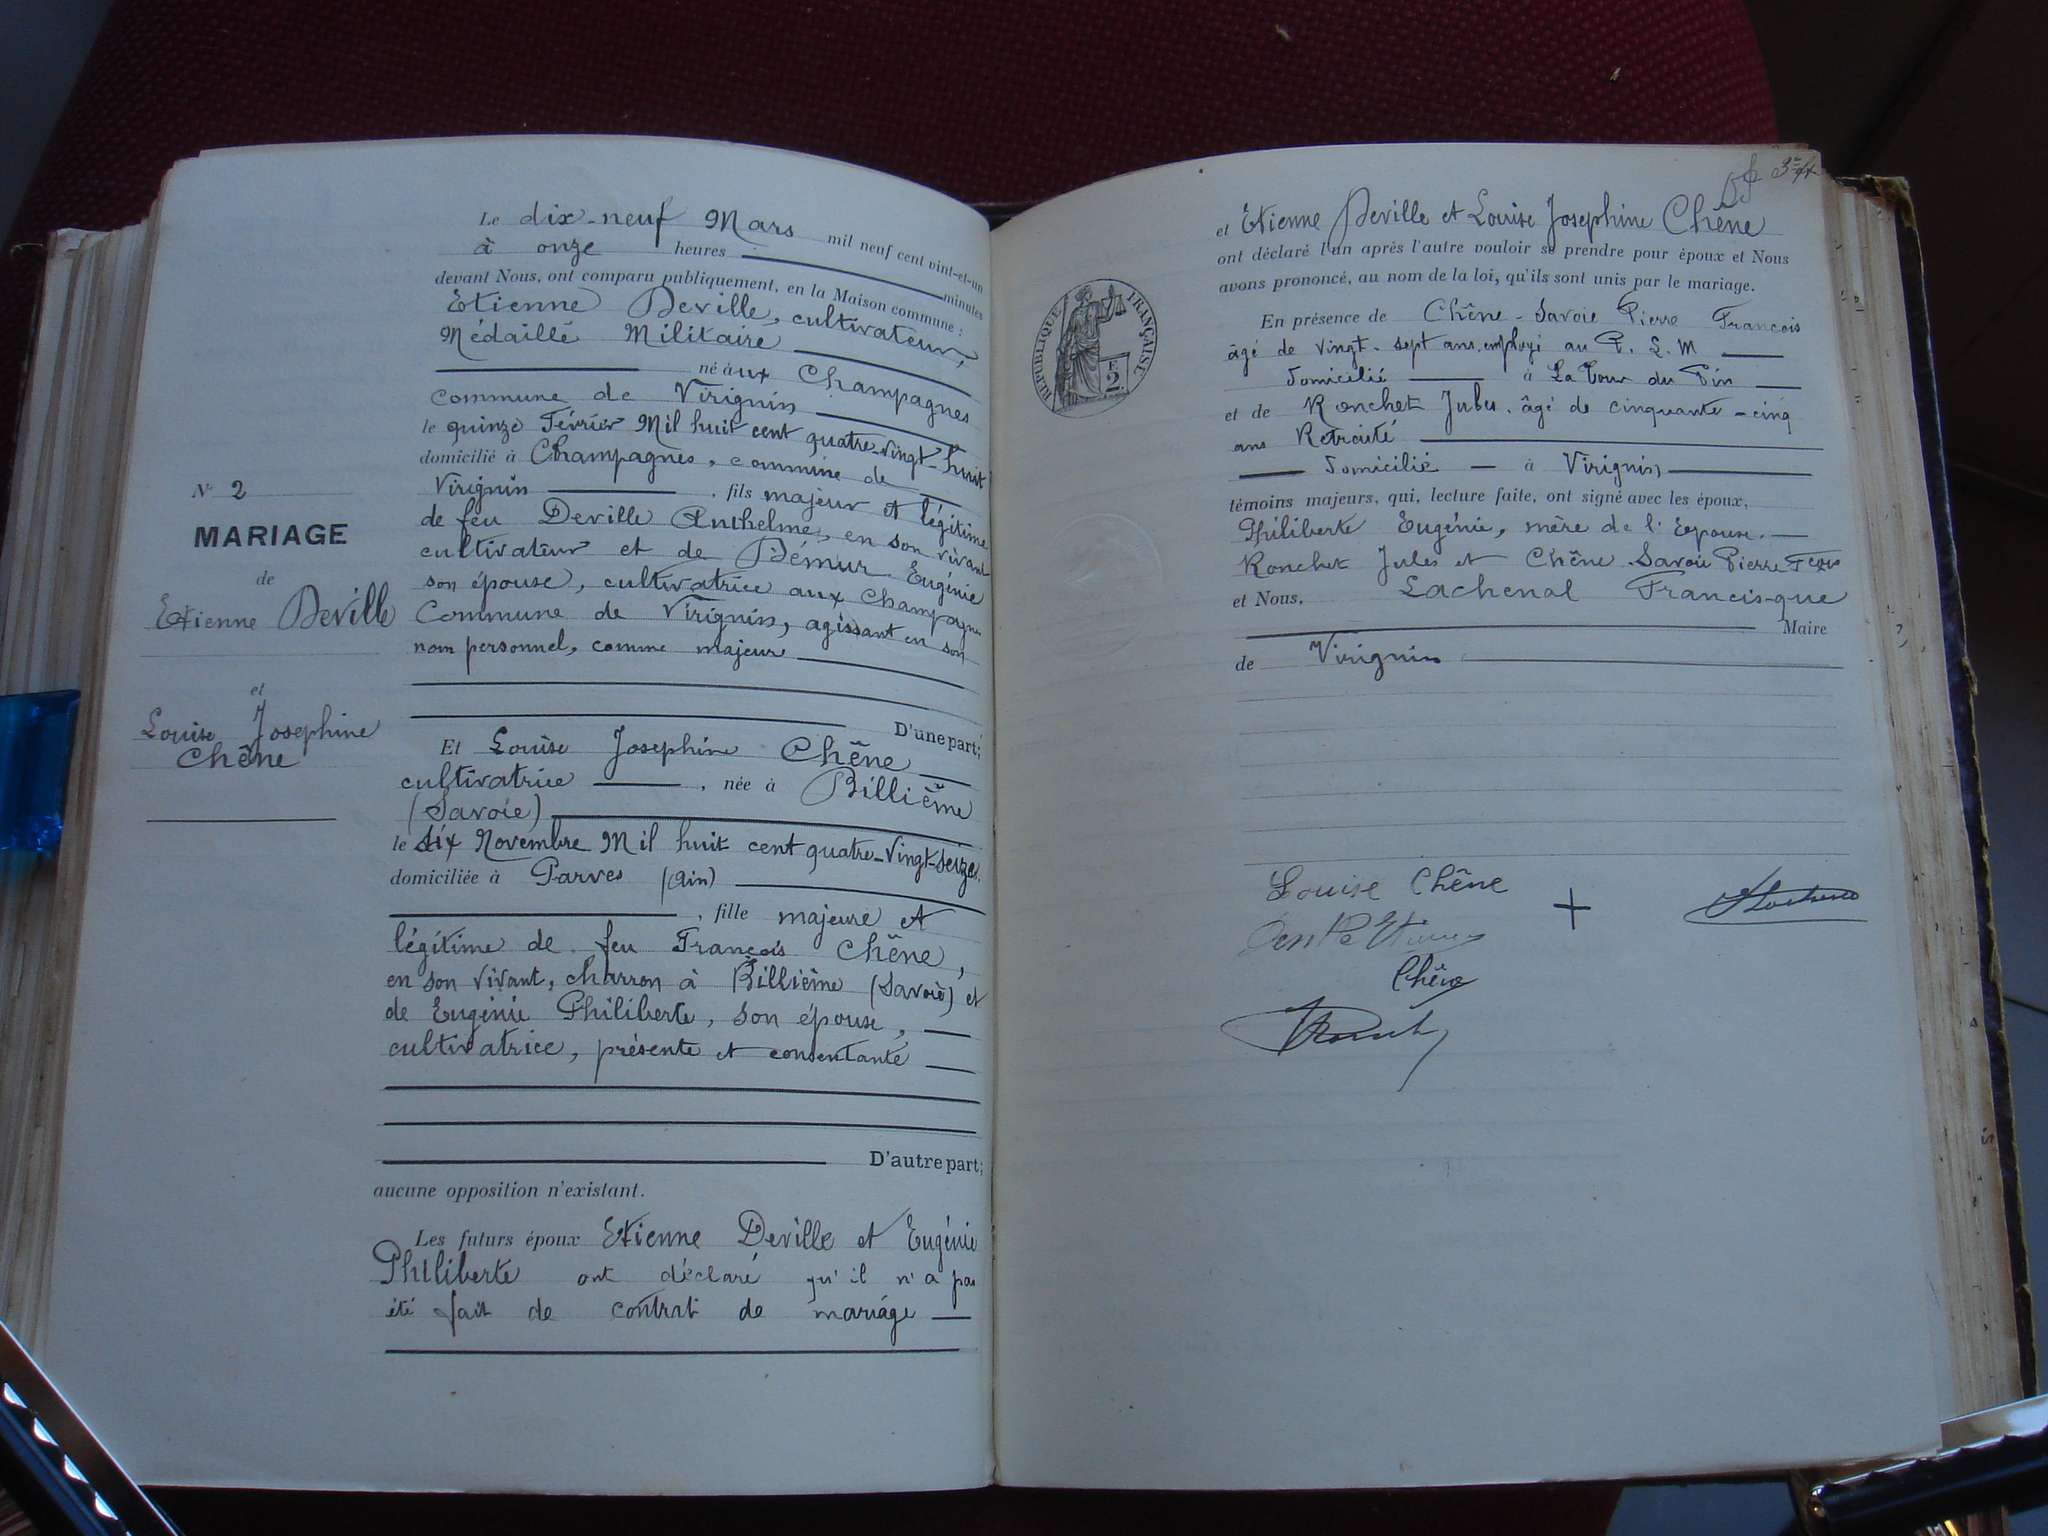 Le dix-neuf Mars mil neuf cent vint-et-un
à onze heures minutes
devant Nous, ont comparu publiquement, en la Maison commune :
Etienne Deville, cultivateur,
Médaillé Militaire
né à ux Champagnes
commune de Virignin
le quinze Février Mil huit cent quatre-vingt-huit
domicilié à Champagnes, commune de
Virignin , fils majeur et légitime
de feu Deville Anthelme, en son vivant
cultivateur et de Démur Eugénie
son épouse, cultivatrice aux Champagnes
Commune de Virignin, agissant en son
nom personnel, comme majeur
D'une part;
N° 2
MARIAGE
de
Etienne Deville
et
Louise Josephine
Chêne
Et Louise Josephine Chêne
cultivatrice , née à Billième
(Savoie)
le six Novembre Mil huit cent quatre-vingt-seize.
domiciliée à Parves (Ain)
, fille majeure et
légitime de feu François Chêne,
en son vivant, charron à Billième (Savoie) et
de Eugénie Philiberte, son épouse,
cultivatrice, présente et consentante
D'autre part;
aucune opposition n'existant.
Les futurs époux Etienne Deville et Eugénie
Philiberte ont déclaré qu'il n'a pas
été fait de contrat de mariage
et Etienne Deville et Louise Josephine Chêne
ont déclaré l'un après l'autre vouloir se prendre pour époux et Nous
avons prononcé, au nom de la loi, qu'ils sont unis par le mariage.
RÉPUBLIQUE FRANÇAISE
2
En présence de Chêne-Savoie Pierre François
âgé de vingt-sept ans, employé au P. L. M
domicilié à La Tour du Pin
et de Ronchet Jules. âgé de cinquante-cinq
ans Retraité
domicilié à Virignin
témoins majeurs, qui, lecture faite, ont signé avec les époux,
Philiberte Eugénie, mère de l'Epouse.
Ronchet Jules et Chêne-Savoie Pierre Fçois
et Nous, Lachenal Francisque
Maire
de Virignin
Louise Chêne
Chêne